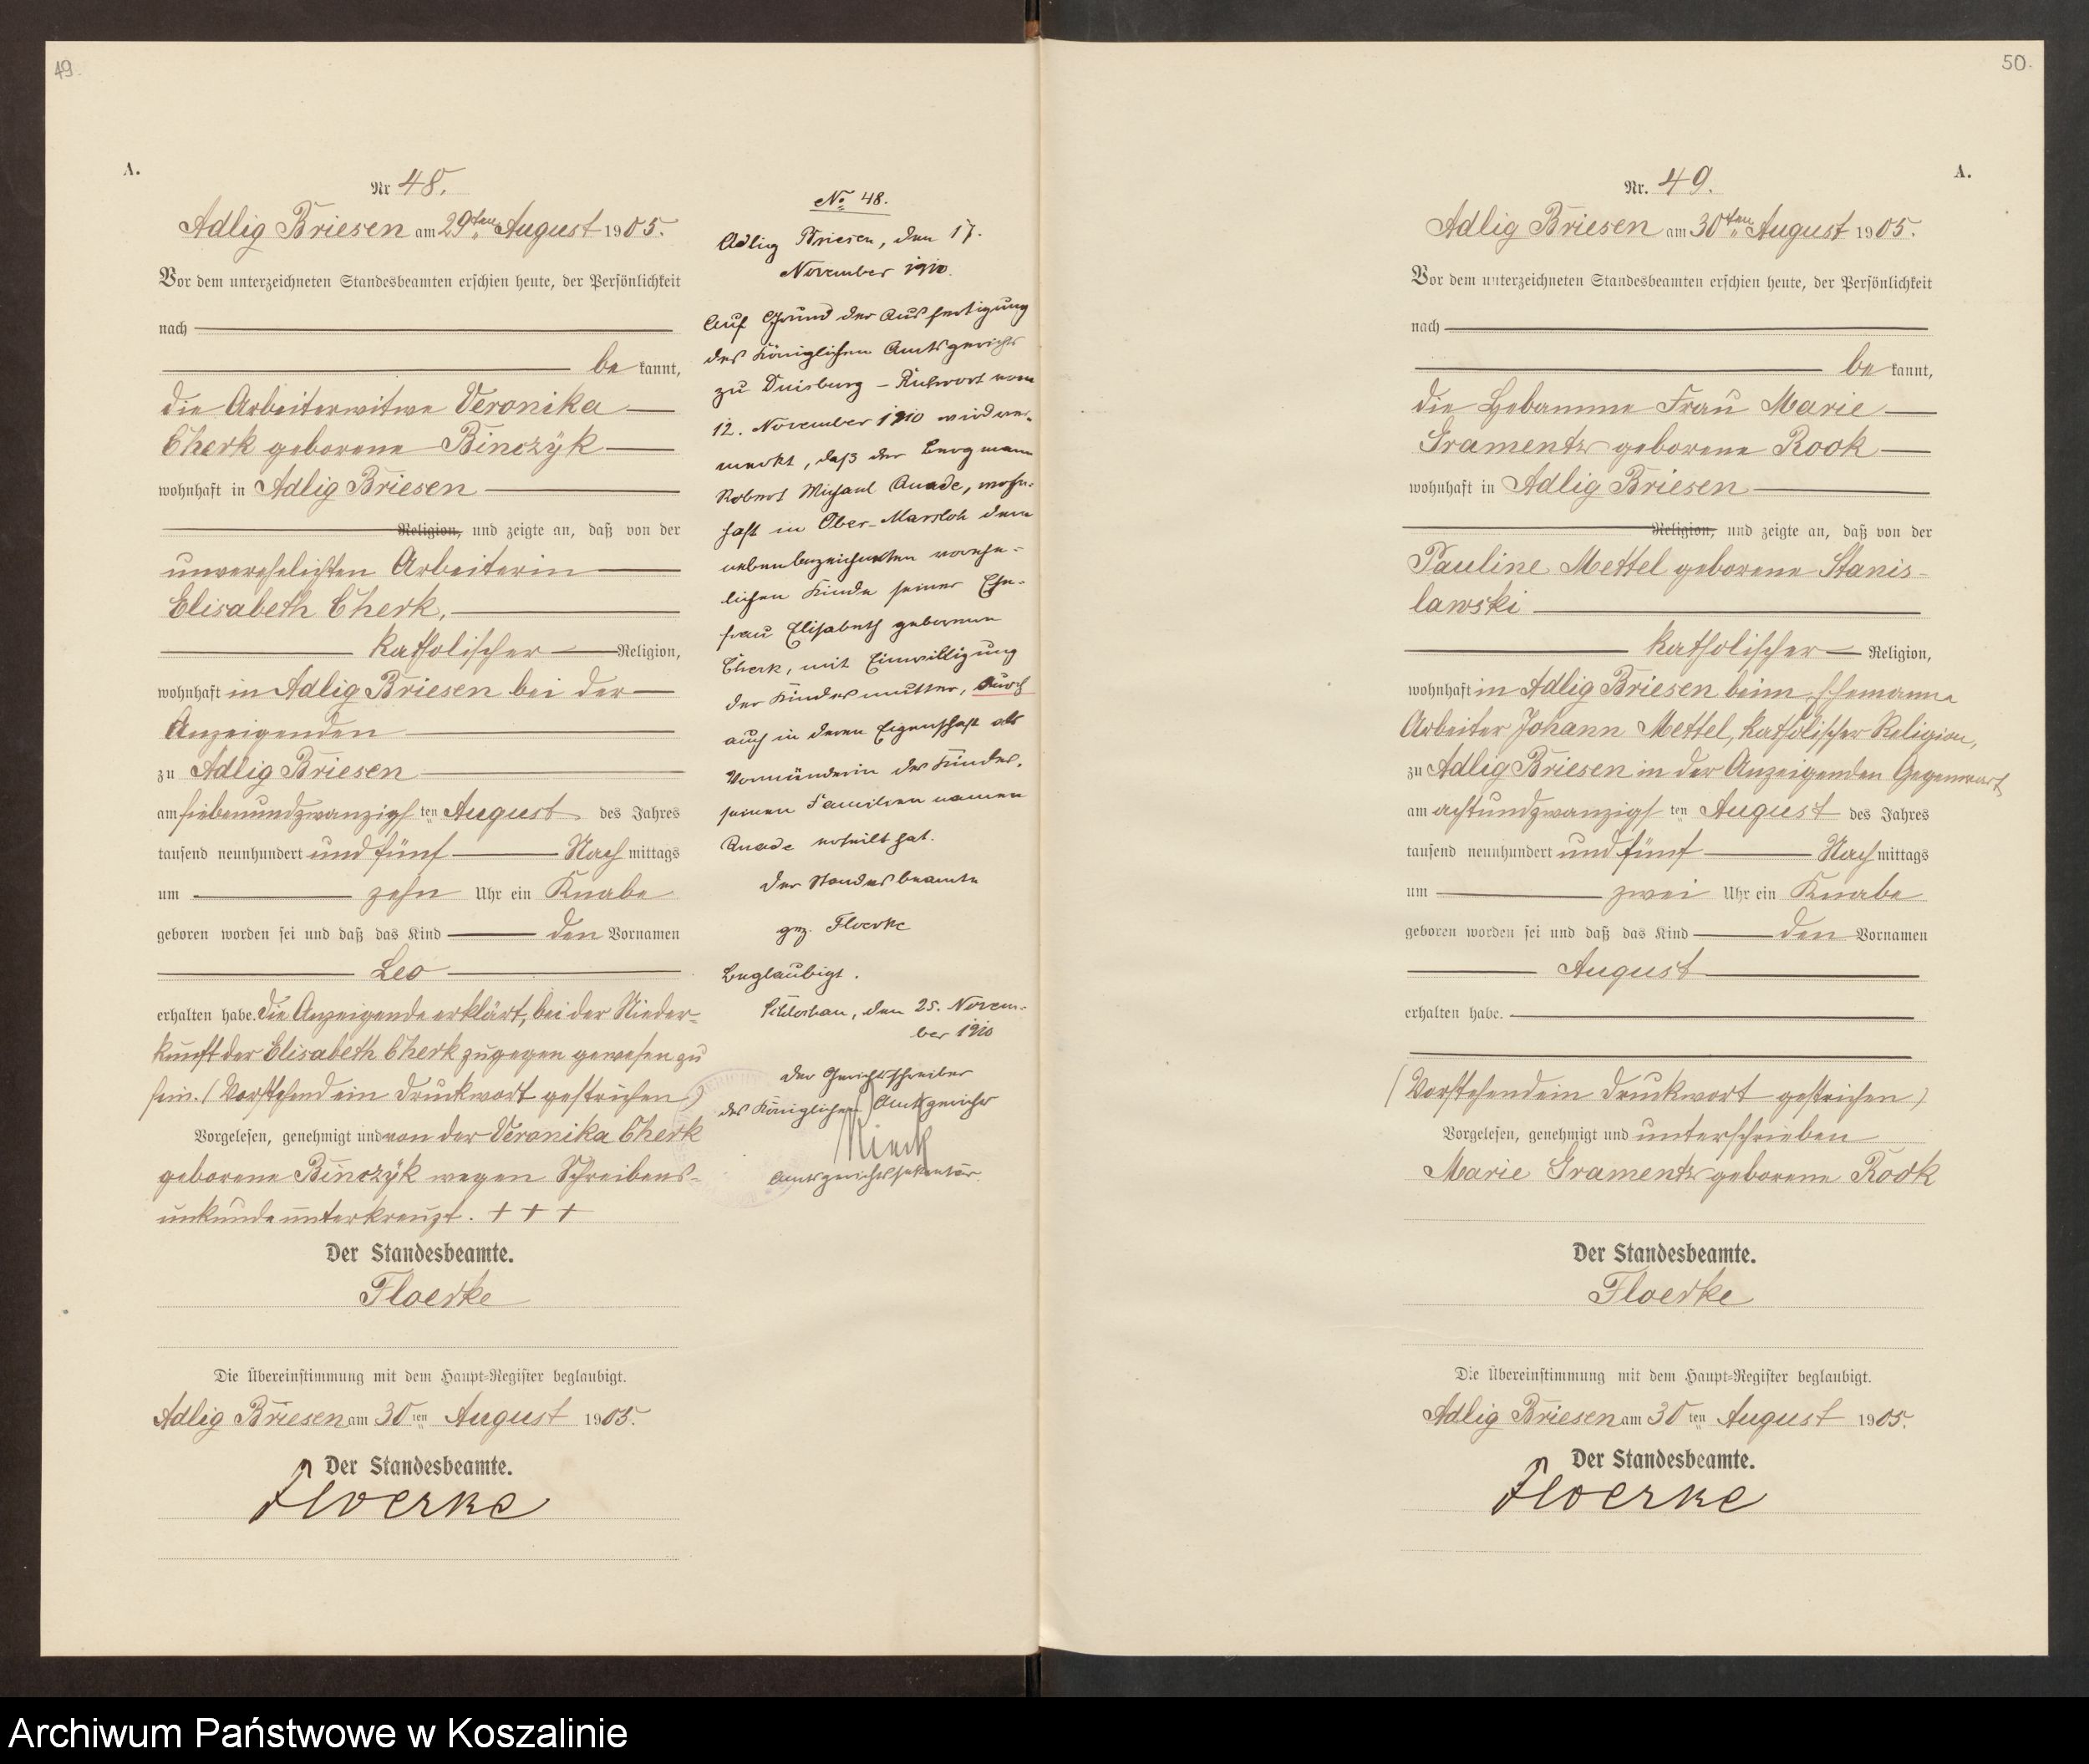 49.
A.
Nr 48.
Adlig Briesen am 29ten August 1905.
Vor dem unterzeichneten Standesbeamten erschien heute, der Persönlichkeit
nach
be kannt,
die Arbeiterwitwe Veronika
Cherk geborene Binczÿk
wohnhaft in Adlig Briesen
Religion, und zeigte an, daß von der
unverehelichten Arbeiterin
Elisabeth Cherk,
katholischer Religion,
wohnhaft in Adlig Briesen bei der
Anzeigenden
zu Adlig Briesen
am siebenundzwanzigsten August des Jahres
tausend neunhundert und fünf Nach mittags
um zehn Uhr ein Knabe
geboren worden sei und daß das Kind den Vornamen
Leo
erhalten habe. Die Anzeigende erklärt, bei der Nieder-
kunft der Elisabeth Cherk zugegen gewesen zu
sein. (Vorstehend ein Druckwort gestrichen)
Vorgelesen, genehmigt und von der Veronika Cherk
geborene Binczÿk wegen Schreibens-
unkunde unterkreuzt. + + +
Der Standesbeamte.
Floerke
Die Übereinstimmung mit dem Haupt-Register beglaubigt.
Adlig Briesen am 30ten August 1905.
Der Standesbeamte.
Floerke
No 48.
Adlig Briesen, den 17.
November 1910.
Auf Grund der Ausfertigung
des Königlichen Amtsgerichts
zu Duisburg - Ruhrort vom
12. November 1910 wird ver-
merkt, daß der Bergmann
Robert Michael Quade, wohn-
haft in Ober-Marxloh dem
nebenbezeichneten vorehe-
lichen Kinde seiner Ehe-
frau Elisabeth geborenen
Cherk, mit Einwilligung
der Kindesmutter, durch
auch in deren Eigenschaft als
Vormünderin des Kindes,
seinen Familiennamen
Quade erteilt hat.
Der Standesbeamte
gez. Floerke
Beglaubigt.
Schlochau, den 25. Novem-
ber 1910
Der Gerichtsschreiber
des Königlichen Amtsgerichts
Amtsgerichtssekretär.
50.
A.
Nr. 49.
Adlig Briesen am 30ten August 1905.
Vor dem unterzeichneten Standesbeamten erschien heute, der Persönlichkeit
nach
be kannt,
die Hebamme Frau Marie
Gramentz geborene Rook
wohnhaft in Adlig Briesen
Religion, und zeigte an, daß von der
Pauline Mettel geborene Stanis-
lawski
katholischer Religion,
wohnhaft in Adlig Briesen beim Ehemanne
Arbeiter Johann Mettel, katholischer Religion,
zu Adlig Briesen in der Anzeigenden Gegenwart
am achtundzwanzigsten August des Jahres
tausend neunhundert und fünf Nach mittags
um zwei Uhr ein Knabe
geboren worden sei und daß das Kind den Vornamen
August
erhalten habe.
(Vorstehend ein Druckwort gestrichen)
Vorgelesen, genehmigt und unterschrieben
Marie Gramentz geborene Rook
Der Standesbeamte.
Floerke
Die Übereinstimmung mit dem Haupt-Register beglaubigt.
Adlig Briesen am 30ten August 1905.
Der Standesbeamte.
Floerke
Archiwum Państwowe w Koszalinie